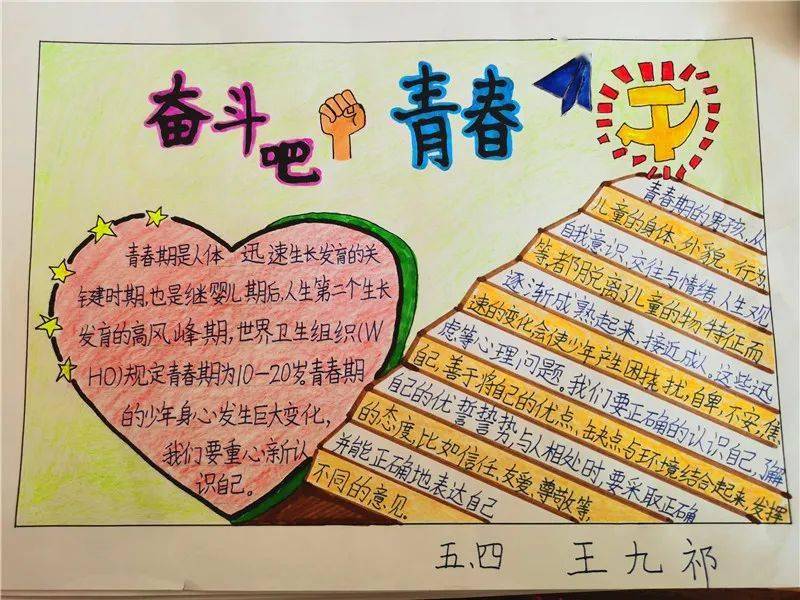 奋斗吧 青春
青春期是人体 迅速生长发育的关
键建时期,也是继婴儿期后,人生第二个生长
发育的高风峰期,世界卫生组织(W
HO)规定青春期为10-20岁,青春期
的少年身心发生巨大变化,
我们要重心亲斤认
识自己。
青春期的男孩,从
儿童的身体、外貌、行为、
自我意识、交往与情绪、人生观
等都脱离了儿童的物特征而
逐渐成熟起来,接近成人。这些迅
速的变化会使少年产生困扰,自卑,不安,焦
虑等心理问题。我们要正确的认识自己,了解
自己,善于将自己的优点,缺点与环境结合起来,发挥
自己的优 势与人相处时,要采取正确
的态度,比如信任、友爱、尊敬等,
并能正确地表达自己
不同的意见。
五、四 王九祁